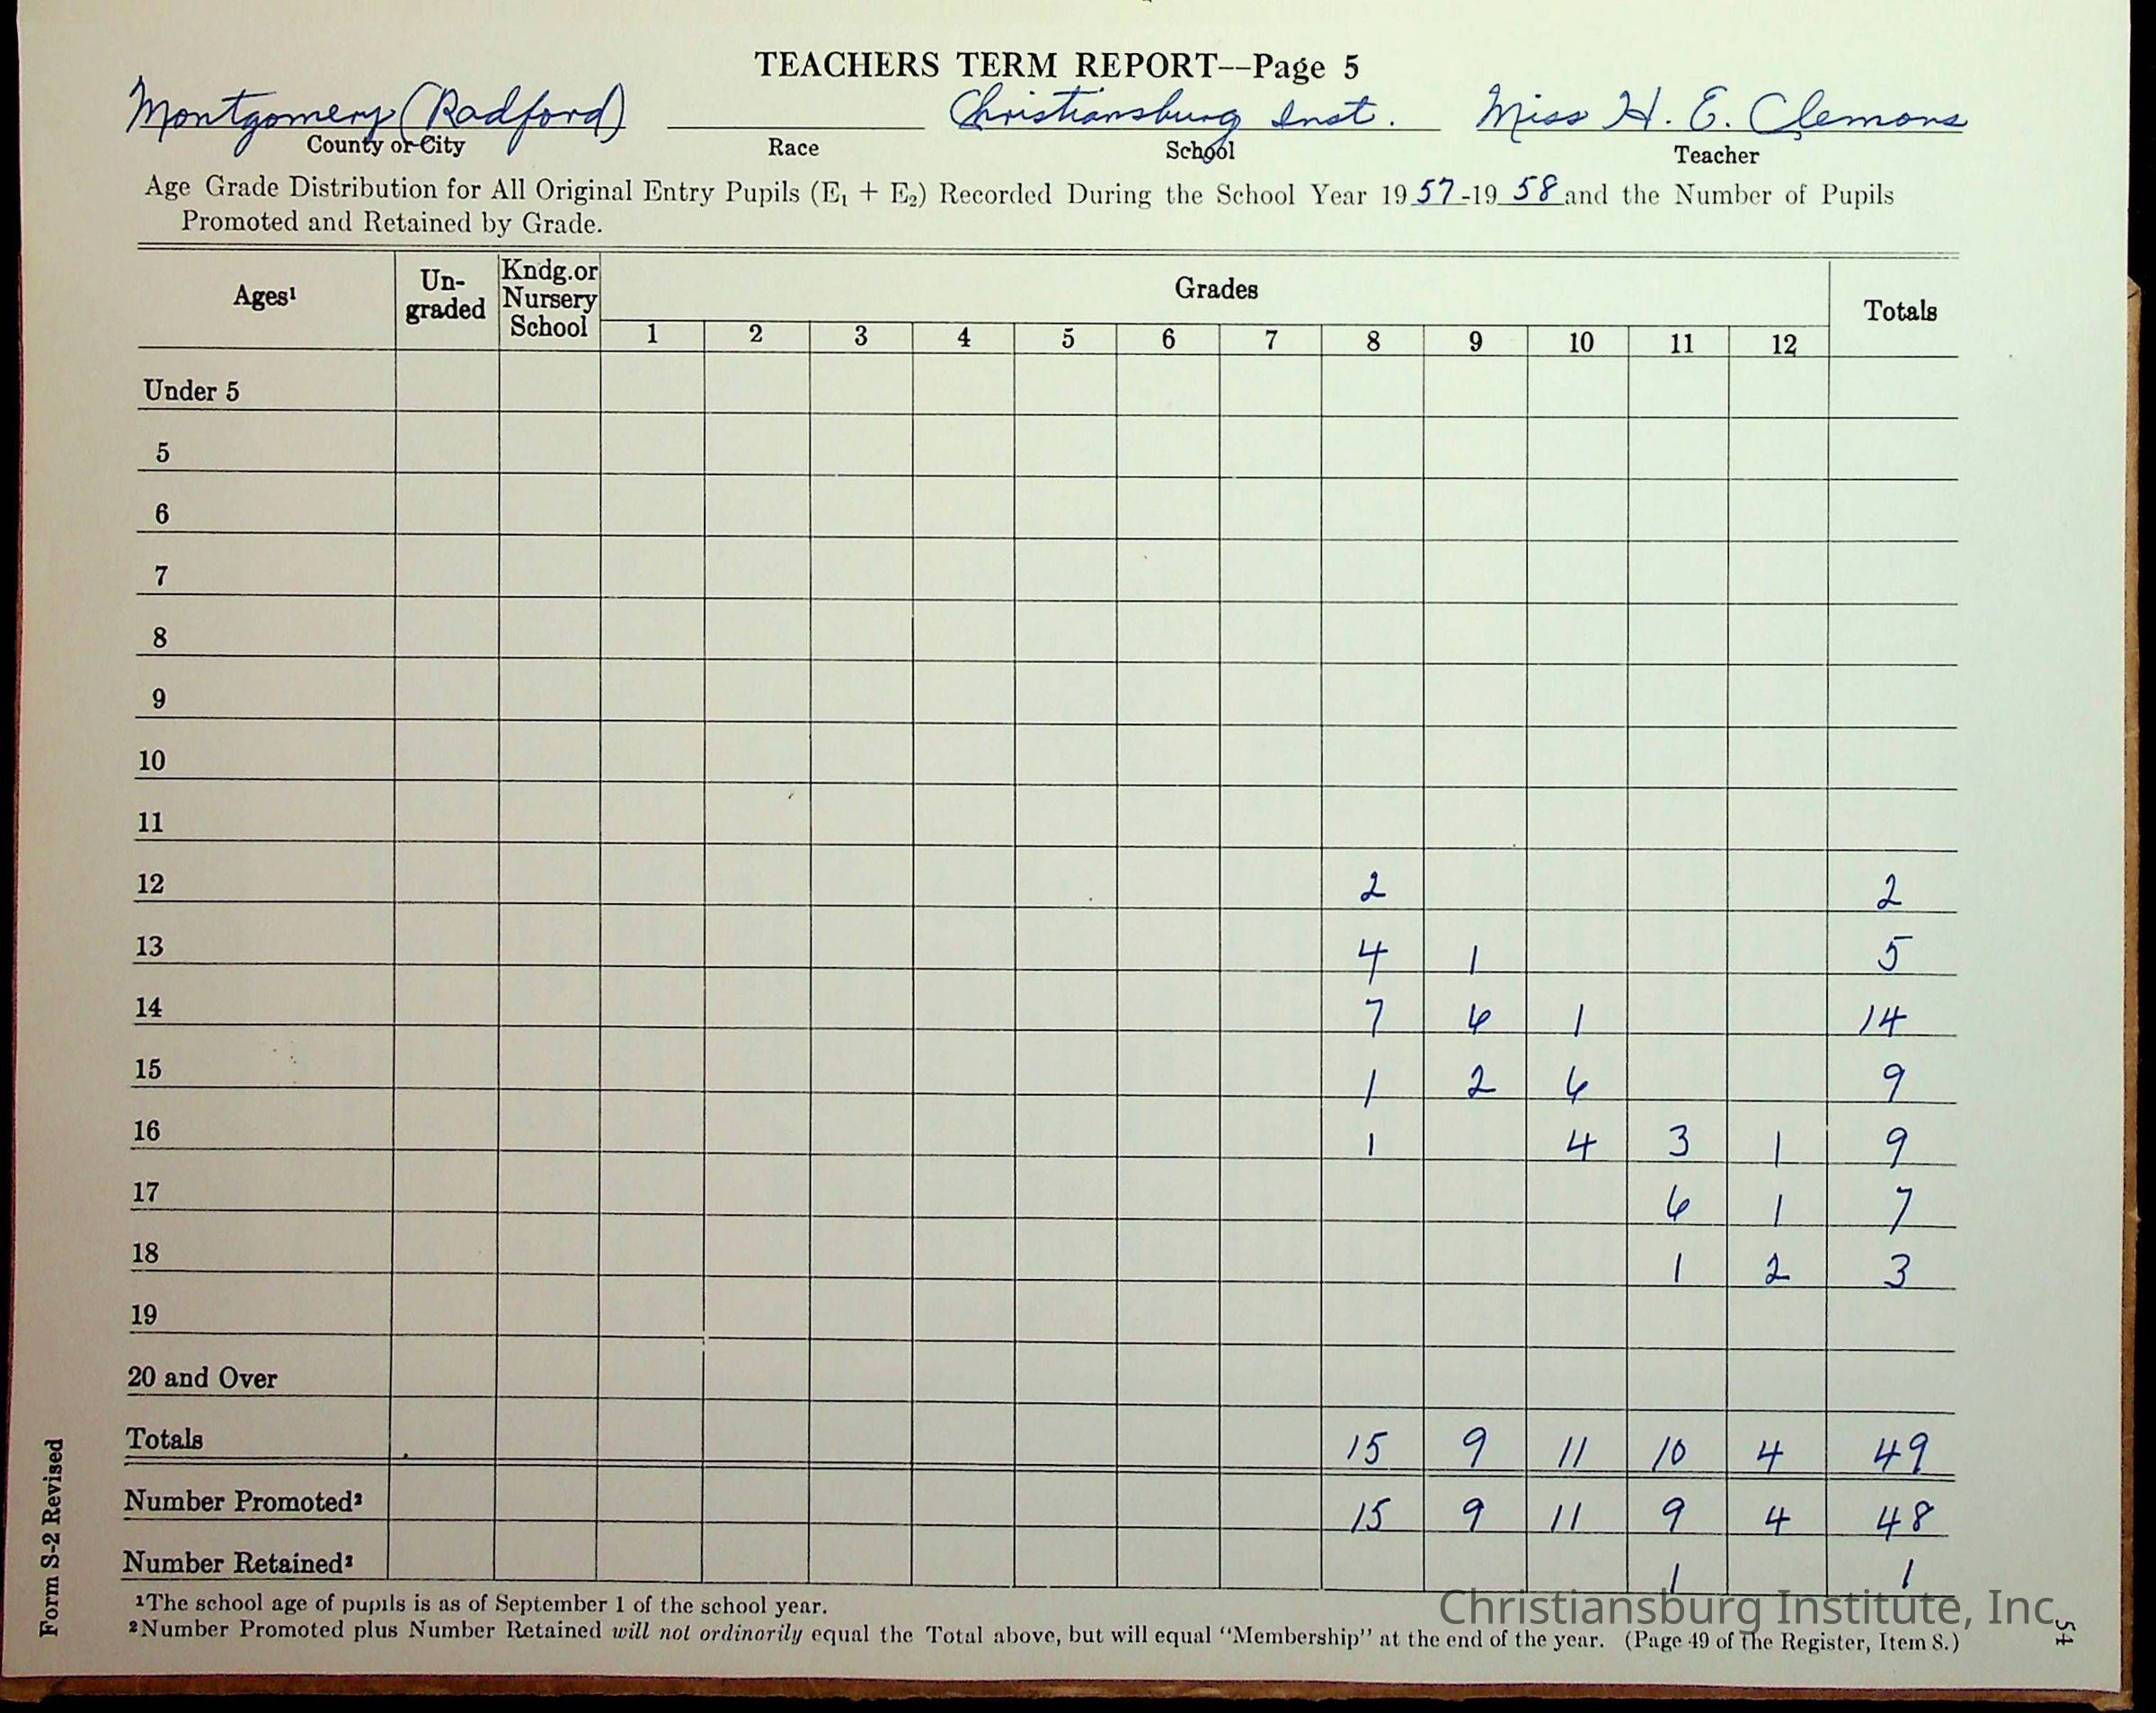 TEACHERS TERM REPORT--Page 5
Montgomery (Radford) Christiansburg Inst. Miss H. E. Clemons
County or City Race School Teacher
Age Grade Distribution for All Original Entry Pupils (E₁ + E₂) Recorded During the School Year 1957-1958 and the Number of Pupils
Promoted and Retained by Grade.
Ages¹ Un-graded Kndg. or Nursery School Grades Totals
1 2 3 4 5 6 7 8 9 10 11 12
Under 5
5
6
7
8
9
10
11
12 2 2
13 4 1 5
14 7 6 1 14
15 1 2 6 9
16 1 4 3 1 9
17 6 1 7
18 1 2 3
19
20 and Over
Totals 15 9 11 10 4 49
Number Promoted² 15 9 11 9 4 48
Number Retained² 1 1
¹The school age of pupils is as of September 1 of the school year.
²Number Promoted plus Number Retained will not ordinarily equal the Total above, but will equal "Membership" at the end of the year. (Page 49 of the Register, Item 8.)
Form S-2 Revised
54
Christiansburg Institute, Inc.